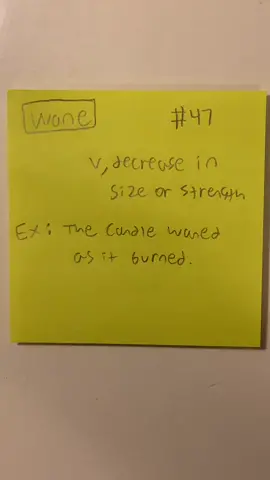 Wane #47
v, decrease in
size or strength
Ex: The Candle waned
as it burned.